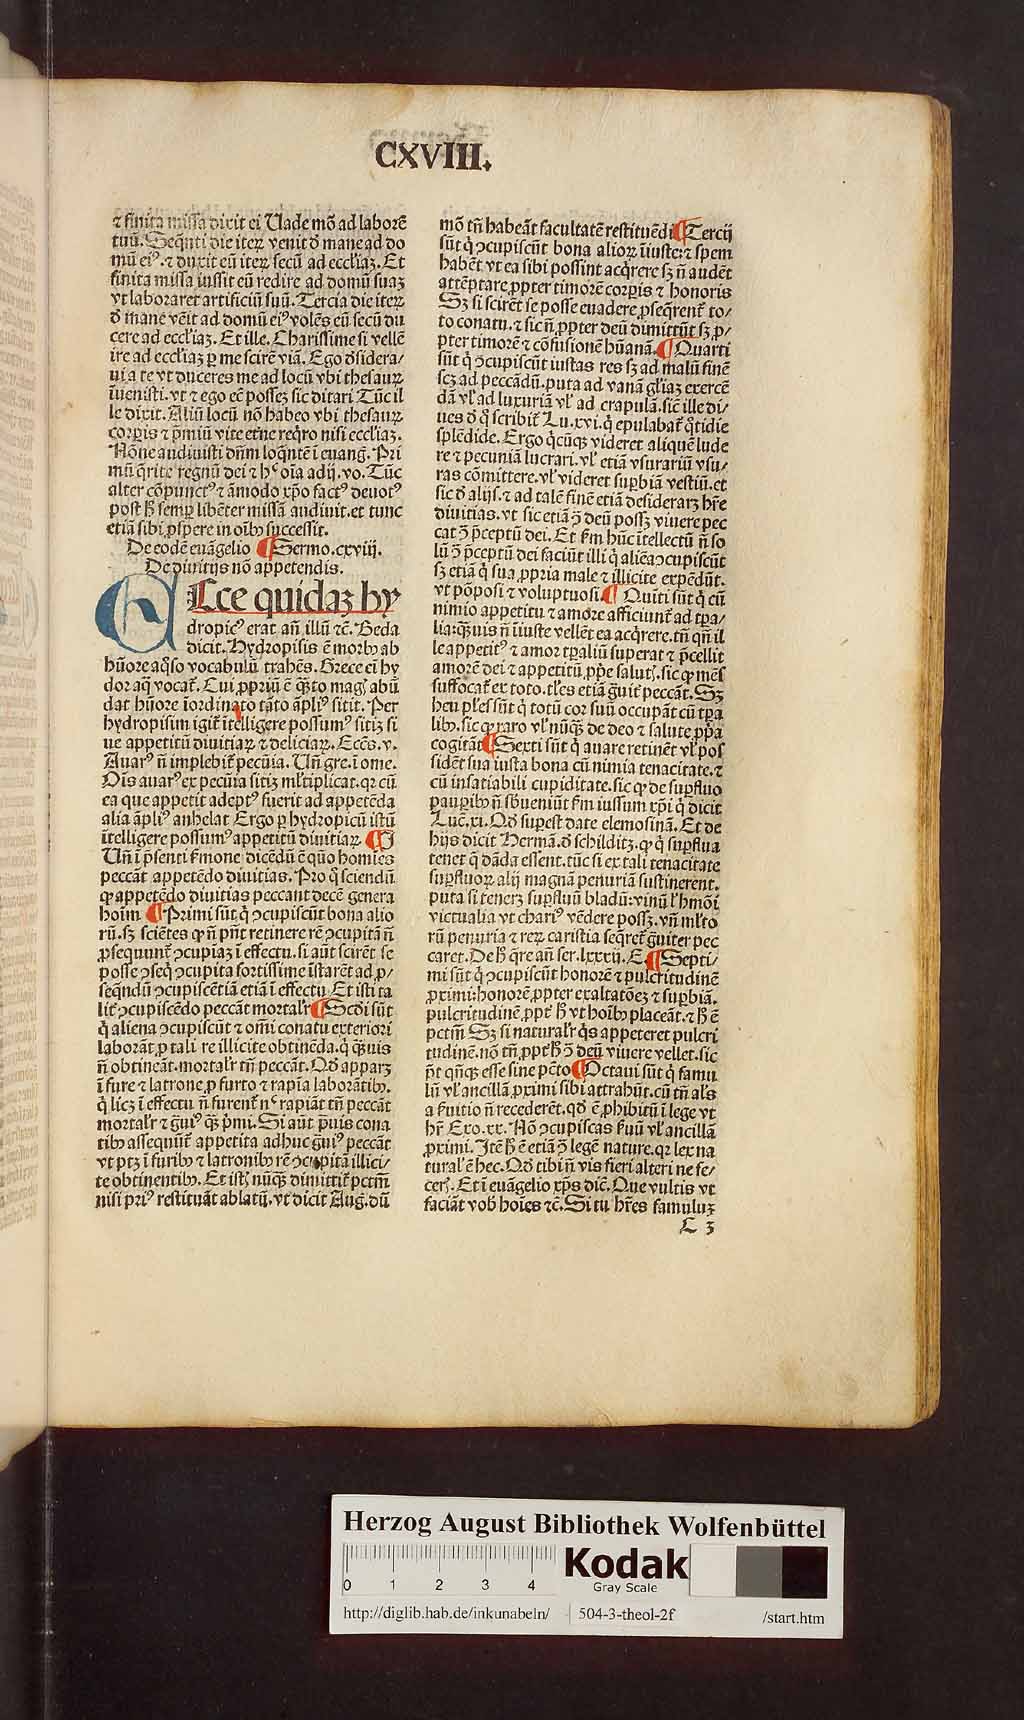 CXVIII.
⁊ finita missa dixit ei Uade mõ ad laborẽ
tuũ. Seq̃nti die iteꝝ venit ð mane ad do
mũ eiꝰ.⁊ duxit eũ iteꝝ secũ ad eccl̃iaꝫ. Et
finita missa iussit eũ redire ad domũ suaꝫ
vt laboraret artificiũ suũ. Tercia die iteꝝ
ð mane vẽit ad domũ eiꝰ volẽs eũ secũ du
cere ad eccl̃iaꝫ. Et ille. Charissime si vellẽ
ire ad eccl̃iaꝫ ꝑ me scirẽ viã. Ego ðsidera/
ui a te vt duceres me ad locũ vbi thesauꝝ
ĩuenisti. vt ⁊ ego eẽ posseꝫ sic ditari Tũc il
le dixit. Aliũ locũ nõ habeo vbi thesauꝝ
corꝑis ⁊ p̃miũ vite et̃ne req̃ro nisi eccl̃iaꝫ.
Nõne audiuisti dñm loq̃ntẽ ĩ euang̃. Pri
mũ q̃rite regnũ dei ⁊ hꝰ oĩa adij. vo. Tũc
alter cõpunctꝰ ⁊ ãmodo xp̃o factꝰ deuotꝰ
post ħ semꝑ libẽter missã audiuit. et tunc
etiã sibi ꝓspere in oĩbꝰ successit.
De eodẽ euãgelio ¶ Sermo. cxviij.
De diuitijs nõ appetendis.
ECce quidaꝫ hy
dropicꝰ erat añ illũ ⁊c̃. Beda
dicit. Hydropisis ẽ morbꝰ ab
hũore aq̃so vocabulũ trahẽs. Grece em̃ hy
dor aq̃ vocat̃. Cui ꝓpriũ ẽ q̃ᵐto magꝭ abũ
dat hũore ĩordinato tãto ãpliꝰ sitit. Per
hydropisim igit̃ ĩtelligere possumꝰ sitiꝫ si
ue appetitũ diuitiaꝝ ⁊ deliciaꝝ. Eccs̃. v.
Auarꝰ ñ implebit̃ pecũia. Uñ gre. ĩ ome.
Oĩs auarꝰ ex pecũia sitiꝫ ml̃tiplicat. qꝛ cũ
ea que appetit adeptꝰ fuerit ad appetẽda
alia ãpliꝰ anhelat Ergo ꝑ hydropicũ istũ
ĩtelligere possumꝰ appetitũ diuitiaꝝ. ¶
Uñ ĩ p̃senti ẽmone dicẽdũ ẽ quo homĩes
peccãt appetẽdo diuitias. Pro q̃ sciendũ
ꝙ appetẽdo diuitias peccant decẽ genera
hoĩm ¶ Primi sũt q̃ ꝯcupiscũt bona alio
rũ. sꝫ sciẽtes ꝙ ñ pñt retinere rẽ ꝯcupitã ñ
ꝓsequunt̃ ꝯcupiaꝫ ĩ effectu. si aũt scirẽt se
posse ꝯseq̃ ꝯcupita fortissime ĩstarẽt ad ꝓ/
seq̃ndũ ꝯcupiscẽtiã etiã ĩ effectu. Et isti ta
lit̃ ꝯcupiscẽdo peccãt mortal̃r ¶ Scđi sũt
q̃ aliena ꝯcupiscũt ⁊ om̃i conatu exteriori
laborãt ꝓ tali re illicite obtinẽda. q̃ q̃ᵐuis
ñ obtineãt. mortal̃r tñ peccãt. Qð apparꝫ
ĩ fure ⁊ latrone ꝓ furto ⁊ rapĩa laborãtibꝰ.
q̃ licꝫ ĩ effectu ñ furent̃ nꝰ rapiãt tñ peccãt
mortal̃r ⁊ g̃uiꝰ q̃ᵐ p̃mi. Si aũt p̃uis cona
tibꝰ asseqũut̃ appetita adhuc g̃uiꝰ peccãt
vt ptꝫ ĩ furibꝰ ⁊ latronibꝰ rẽ ꝯcupitã illici/
te obtinentibꝰ. Et istꝭ nũq̃ᵐ dimittit̃ pctm̃
nisi priꝰ restituãt ablatũ. vt dicit Aug. dũ
mõ tñ habeãt facultatẽ restituẽdi ¶ Tercij
sũt q̃ ꝯcupiscũt bona alioꝝ ĩiuste:⁊ spem
habẽt vt ea sibi possint acq̃rere sꝫ ñ audẽt
attẽptare ꝓpter timorẽ corꝑis ⁊ honoris
Sꝫ si scirẽt se posse euadere ꝓseq̃rent̃ to/
to conatu. ⁊ sic ñ ꝓpter deũ dimittũt sꝫ ꝓ/
pter timorẽ ⁊ cõfusionẽ hũanã ¶ Quarti
sũt q̃ ꝯcupiscũt iustas res sꝫ ad malũ finẽ
scꝫ ad peccãdũ. puta ad vanã gl̃iaꝫ exercẽ
dã vl̃ ad luxuriã vl̃ ad crapulã. sic ille di/
ues ð q̃ scribit̃ Lu. xvi. q̃ epulabat̃ q̃tidie
splẽdide. Ergo q̃cũqꝫ videret aliquẽ lude
re ⁊ pecuniã lucrari. vl̃ etiã vsurariũ vsu/
ras cõmittere. vl̃ videret suꝑbiã vestiũ. et
sic ð alijs. ⁊ ad talẽ finẽ etiã desideraꝝ hr̃e
diuitias. vt sic etiã ꝯ̃ deũ possꝫ viuere pec
cat ꝯ̃ p̃ceptũ dei. Et ẽm hũc ĩtellectũ ñ so
lũ ꝯ̃ p̃ceptũ dei faciũt illi q̃ aliẽa ꝯcupiscũt
sꝫ etiã q̃ sua ꝓpria male ⁊ illicite expẽdũt.
vt põposi ⁊ voluptuosi ¶ Quĩti sũt q̃ cũ
nimio appetitu ⁊ amore afficiunt̃ ad tꝑa/
lia: q̃ᵐuis ñ ĩiuste vellẽt ea acq̃rere. tñ qñ il
le appetitꝰ ⁊ amor tꝑaliũ suꝑat ⁊ p̃cellit
amorẽ dei ⁊ appetitũ ꝓp̃e salutꝭ. sic ꝙ mẽs
suffocat̃ ex toto. tl̃es etiã g̃uit̃ peccãt. Sꝫ
heu pl̃es sũt q̃ totũ cor suũ occupãt cũ tꝑa
libꝰ. sic ꝙ raro vl̃ nũq̃ᵐ de deo ⁊ salute ꝓp̃a
cogitãt ¶ Sexti sũt q̃ auare retinẽt vl̃ pos
sidẽt sua iusta bona cũ nimia tenacitate. ⁊
cũ insatiabili cupiditate. sic ꝙ de suꝑfluo
pauꝑibꝰ ñ sb̃ueniũt ẽm iussum xp̃i q̃ dicit
Luc̃. xi. Qð suꝑest date elemosinã. Et de
hijs dicit Hermã. ð schilditꝫ. ꝙ q̃ suꝑflua
tenet q̃ dãda essent. tũc si ex tali tenacitate
suꝑfluoꝝ alij magnã penuriã sustinerent.
puta si tenerꝫ suꝑfluũ bladũ: vinũ ⁊ hmõi
victualia vt chariꝰ vẽdere possꝫ. vñ ml̃to
rũ penuria ⁊ reꝝ caristia seq̃ret̃ g̃uiter pec
caret. De ħ q̃re añ ser. lxxxij. E. ¶ Septi/
mi sũt q̃ ꝯcupiscũt honorẽ ⁊ pulcritudinẽ
ꝓximi: honorẽ ꝓpter exaltatõeꝫ ⁊ suꝑbiã.
pulcritudinẽ ꝓpt̃ ħ vt hoĩbꝰ placeãt. ⁊ ħ ẽ
pctm̃ Sꝫ si natural̃r q̃s appeteret pulcri
tudinẽ. nõ tñ ꝓpt̃ ħ ꝯ̃ deũ viuere vellet. sic
p̃t qñqꝫ esse sine pc̃to ¶ Octaui sũt q̃ famu
lũ vl̃ ancillã ꝓximi sibi attrahũt. cũ tñ al̃s
a ẽuitio ñ recederẽt. qð ẽ ꝓhibitũ ĩ lege vt
hr̃ Exo. xx. Nõ ꝯcupiscas ẽuũ vl̃ ancillã
ꝓximi. Itẽ ħ ẽ etiã ꝯ̃ legẽ nature. qꝛ lex na
tural̃ ẽ hec. Qð tibi ñ vis fieri alteri ne fe/
cerꝭ. Et ĩ euãgelio xp̃s dic̃. Que vultis vt
faciãt vob̃ hoĩes ⁊c̃. Si tu hr̃es famuluꝫ
L 3
Herzog August Bibliothek Wolfenbüttel
0 1 2 3 4
Kodak
Gray Scale
http://diglib.hab.de/inkunabeln/ 504-3-theol-2f /start.htm